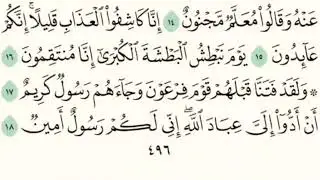 عَنْهُ وَقَالُوا۟ مُعَلَّمٌ مَّجْنُونٌ ١٤ إِنَّا كَاشِفُوا۟ ٱلْعَذَابِ قَلِيلًا ۚ إِنَّكُمْ
عَآئِدُونَ ١٥ يَوْمَ نَبْطِشُ ٱلْبَطْشَةَ ٱلْكُبْرَىٰٓ إِنَّا مُنتَقِمُونَ ١٦
۞ وَلَقَدْ فَتَنَّا قَبْلَهُمْ قَوْمَ فِرْعَوْنَ وَجَآءَهُمْ رَسُولٌ كَرِيمٌ ١٧
أَنْ أَدُّوٓا۟ إِلَىَّ عِبَادَ ٱللَّهِ ۖ إِنِّى لَكُمْ رَسُولٌ أَمِينٌ ١٨
٤٩٦